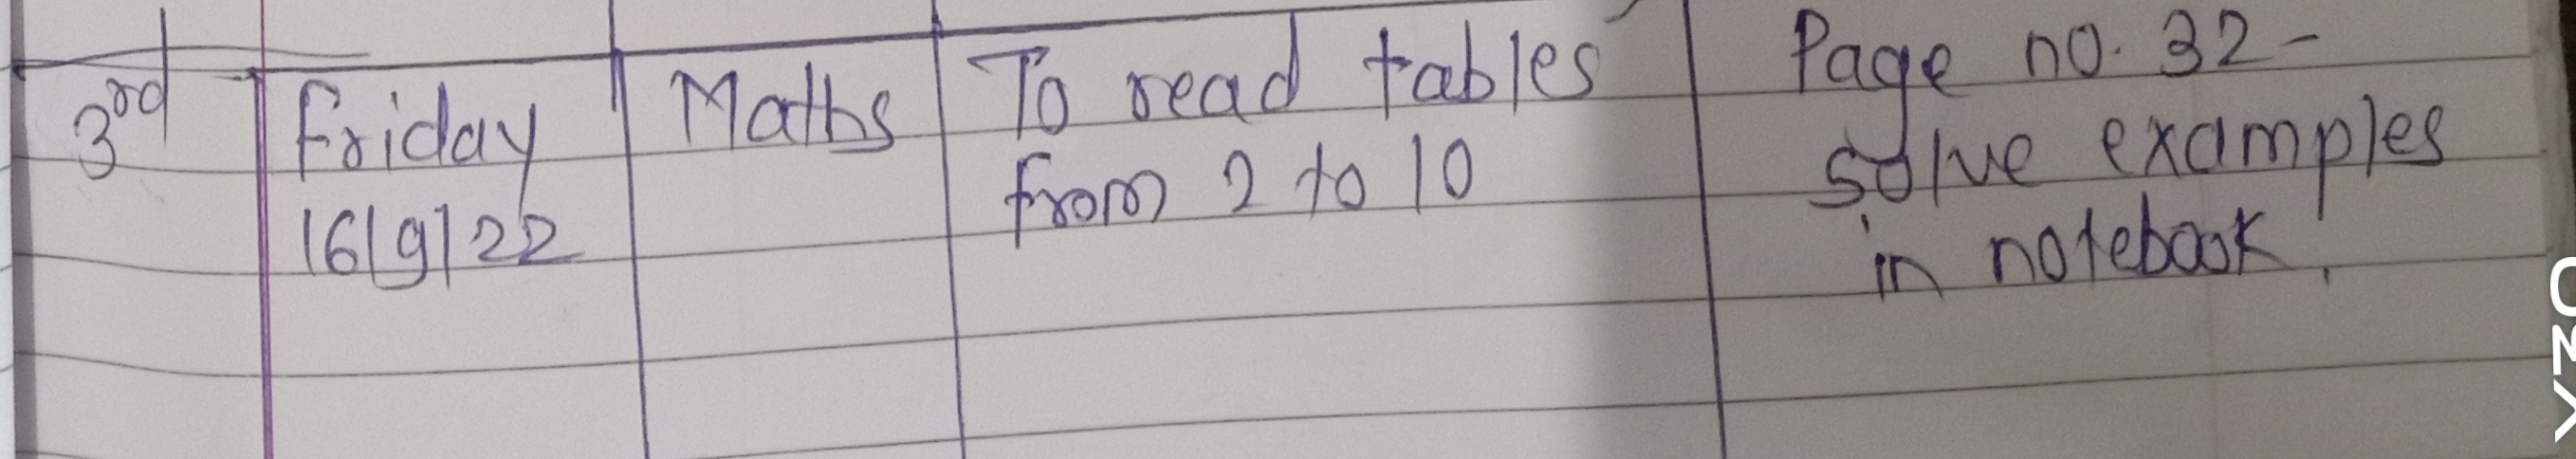 3rd
Friday
16/9/22
Maths
To read tables
from 2 to 10
Page no. 32-
solve examples
in notebook.